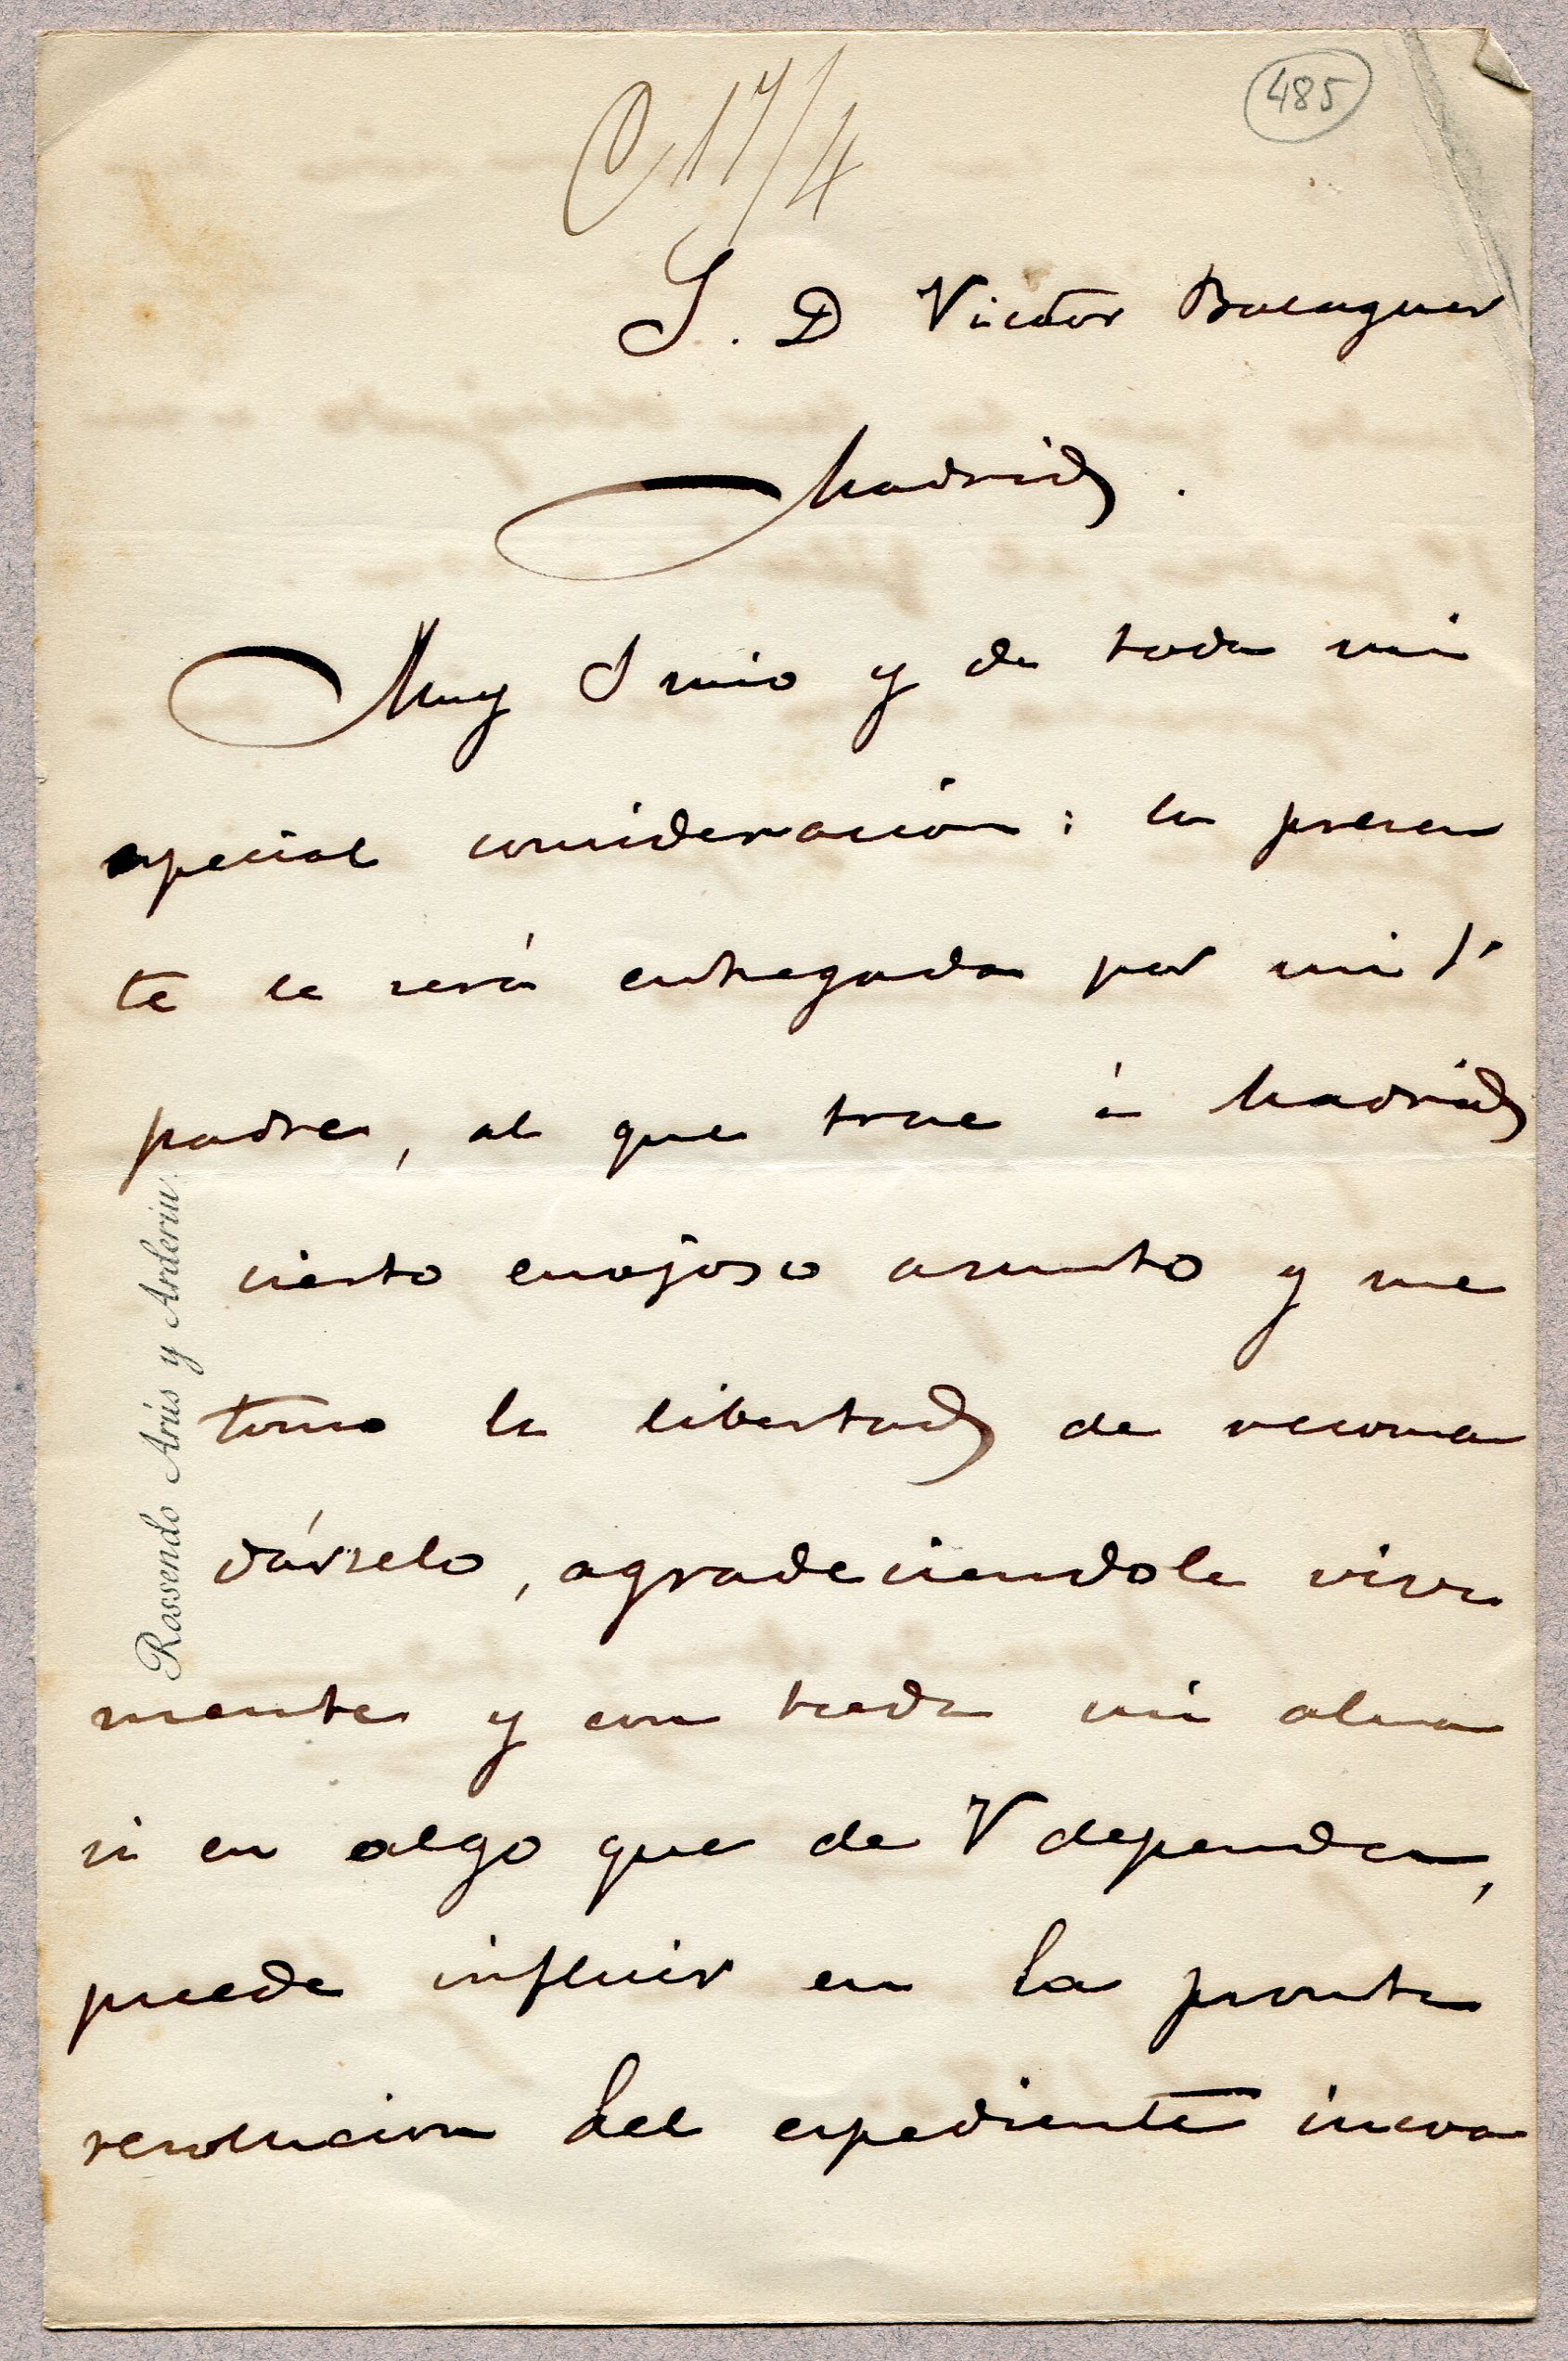 C 17/4
485
S. D Victor Balaguer
Madrid.
Muy S mio y de toda mi
especial consideración: la presen
te le será entregada por mi Sr
padre, al que trae á Madrid
cierto enojoso asunto y me
tomo la libertad de recomen
dárselo, agradeciendole viva
mente y con toda mi alma
si en algo que de V dependa,
puede influir en la pronta
resolucion del espediente incoa
Rossendo Arús y Arderiu.